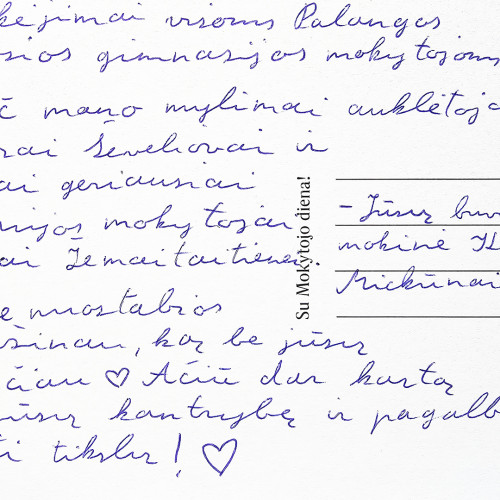 kėjimai visoms Palangos
sios gimnazijos mokytojoms
č mano mylimai auklėtoja
rai Ševeliovai ir
ai geriausiai
nijos mokytojai
ai Žemaitaitienei.
e nuostabios
šinau, kaz be jūsų
čiau ♡ Ačiū dar kartą
ūsų kantrybę ir pagalb
ti tikslų! ♡
Su Mokytojo diena!
- Jūsų buv
mokinė
Mickūnai